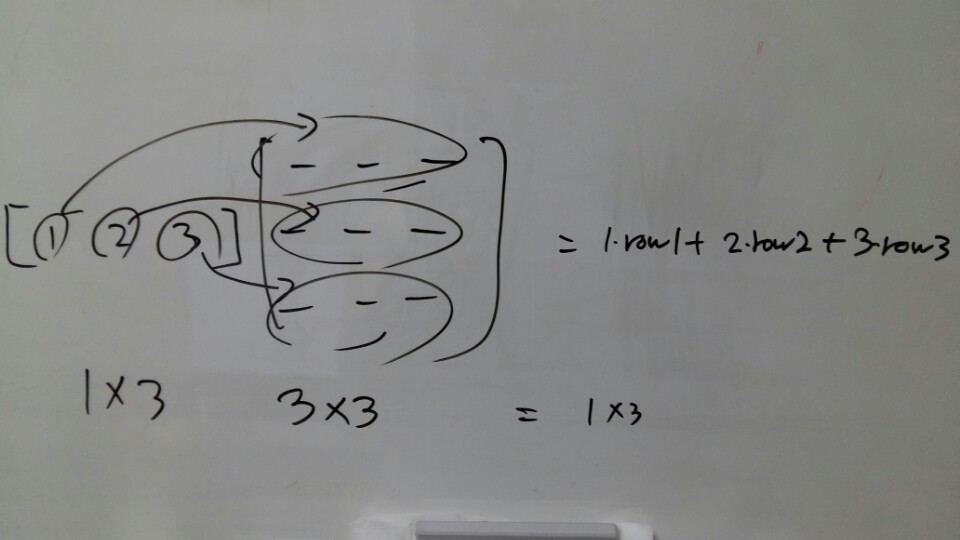 [1 2 3] [- - -
- - -
- - -] = 1·row1 + 2·row2 + 3·row3
1×3 3×3 = 1×3